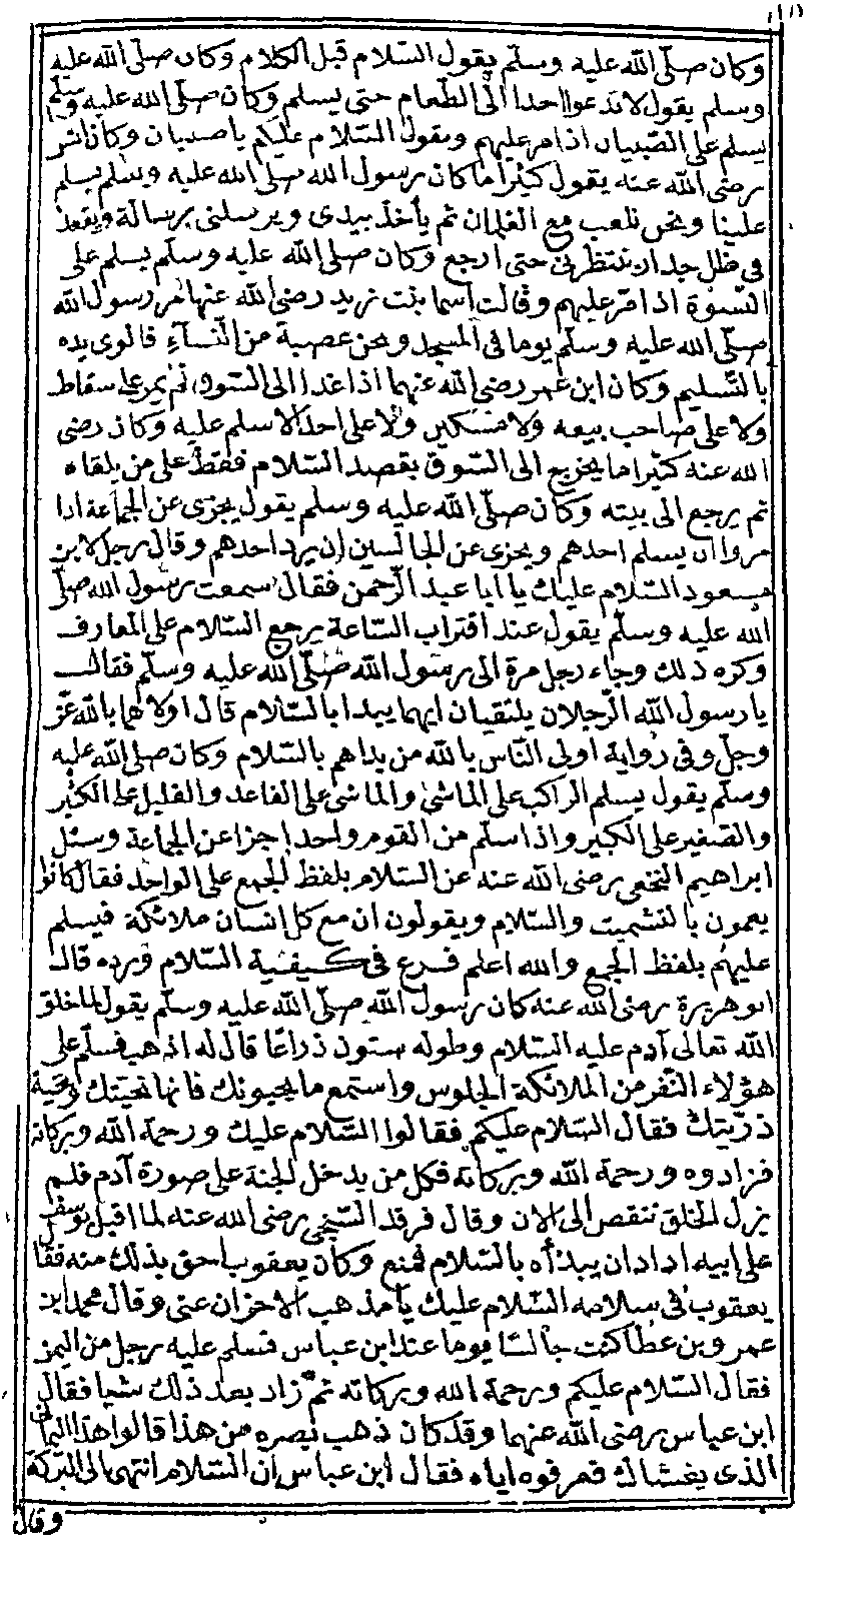 وكان صلّى الله عليه وسلّم يقول السّلام قبل الكلام وكان صلّى الله عليه
وسلم يقول لا تدعوا احدا الى الطّعام حتى يسلم وكان صلّى الله عليه وسلّم
يسلم على الصّبيان اذا مر عليهم ويقول السّلام عليكم يا صبيان وكان انس
رضى الله عنه يقول كثيرا ما كان رسول الله صلى الله عليه وسلم يسلم
علينا ونحن نلعب مع الغلمان ثم يأخذ بيدى ويرسلنى برسالة ويقعد
فى ظل جدار ينتظرنى حتى ارجع وكان صلى الله عليه وسلّم يسلم على
النّسوة اذا مرّ عليهم وقالت اسما بنت يزيد رضى الله عنها مر رسول الله
صلّى الله عليه وسلّم يوما فى المسجد ونحن عصبة من النّسآء فالوى يده
بالتّسليم وكان ابن عمر رضى الله عنهما اذا غدا الى السّوق لم يمر على سقاط
ولا على صاحب بيعه ولا مسكين ولا على احد الا سلم عليه وكان رضى
الله عنه كثيرا ما يخرج الى السّوق بقصد السّلام فقط على من يلقاه
ثم يرجع الى بيته وكان صلّى الله عليه وسلم يقول يجزى عن الجماعة اذا
مروا ان يسلم احدهم ويجزى عن الجالسين ان يرد احدهم وقال رجل لابن
مسعود السّلام عليك يا ابا عبد الرّحمن فقال سمعت رسول الله صلّى
الله عليه وسلّم يقول عند اقتراب السّاعة يرجع السّلام على المعارف
وكره ذلك وجاء رجل مرة الى رسول الله صلّى الله عليه وسلّم فقال
يا رسول الله الرّجلان يلتقيان ايهما يبدا بالسّلام قال اولاهما بالله عزّ
وجلّ وفى رواية اولى النّاس بالله من بداهم بالسّلام وكان صلى الله عليه
وسلّم يقول يسلم الراكب على الماشى والماشى على القاعد والقليل على الكثير
والصّغير على الكبير واذا سلّم من القوم واحد اجزا عن الجماعة وسئل
ابراهيم النّخعى رضى الله عنه عن السّلام بلفظ الجمع على الواحد فقال كانوا
يعمون بالتشميت والسّلام ويقولون ان مع كل انسان ملائكة فيسلم
عليهم بلفظ الجمع والله اعلم فرع فى كيفية السّلام ورده قال
ابو هريرة رضى الله عنه كان رسول الله صلّى الله عليه وسلّم يقول لما خلق
الله تعالى آدم عليه السّلام وطوله ستون ذراعا قال له اذهب فسلّم على
هؤلاء النّفر من الملائكة الجلوس واستمع ما يحيونك فانها تحيتك وتحية
ذرّيتك فقال السّلام عليكم فقالوا السّلام عليك ورحمة الله وبركاته
فزادوه ورحمة الله وبركاته فكل من يدخل الجنة على صورة آدم فلم
يزل الخلق تنقص الى الان وقال فرقد السّبخى رضى الله عنه لما اقبل يوسف
على ابيه اراد ان يبدأه بالسّلام فمنع وكان يعقوب احق بذلك منه فقا
يعقوب فى سلامه السّلام عليك يا مذهب الاحزان عنى وقال محمد ابن
عمرو بن عطا كنت جالسا يوما عند ابن عباس فسلم عليه رجل من اليمن
فقال السّلام عليكم ورحمة الله وبركاته ثم زاد بعد ذلك شيا فقال
ابن عباس رضى الله عنهما وقد كان ذهب بصره من هذا قالوا هذا اليمانى
الذى يغشاك فعرفوه اياه فقال ابن عباس ان السّلام انتهى الى البركة
وقال